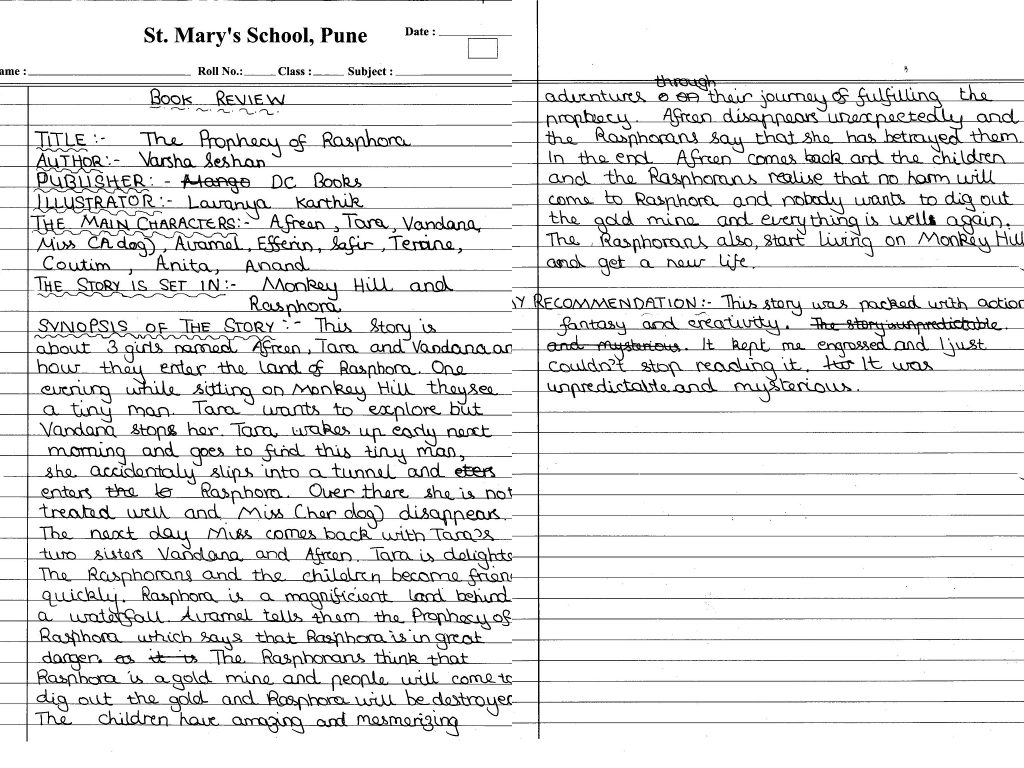 St. Mary's School, Pune
Date :
ame :
Roll No.: Class : Subject :
BOOK REVIEW
TITLE :- The Prophecy of Rasphora
AUTHOR:- Varsha Seshan
PUBLISHER: - Mango DC Books
ILLUSTRATOR:- Lavanya Karthik
THE MAIN CHARACTERS:- Afreen, Tara, Vandana,
Miss (A dog), Avamel, Efferin, Safir, Terrine,
Coutim, Anita, Anand
THE STORY IS SET IN:- Monkey Hill and
Rasphora
SYNOPSIS OF THE STORY :- This Story is
about 3 girls named Afreen, Tara and Vandana an
how they enter the land of Rasphora. One
evening while sitting on Monkey Hill they see
a tiny man. Tara wants to explore but
Vandana stops her. Tara wakes up early next
morning and goes to find this tiny man,
she accidentaly slips into a tunnel and eters
enters the lo Rasphora. Over there she is not
treated well and Miss (her dog) disappears.
The next day Miss comes back with Tara's
two sisters Vandana and Afreen. Tara is delighte
The Rasphorans and the children become frien
quickly. Rasphora is a magnificient land behind
a waterfall. Avamel tells them the Prophecy of
Rasphora which says that Rasphora is in great
danger. as it is The Rasphorans think that
Rasphora is a gold mine and people will come to
dig out the gold and Rasphora will be destroyed
The children have amazing and mesmerizing
through
adventures o on their journey of fulfilling the
prophecy. Afreen disappears unexpectedly and
the Rasphorans say that she has betrayed them.
In the end Afreen comes back and the children
and the Rasphorans realise that no harm will
come to Rasphora and nobody wants to dig out
the gold mine and everything is well again.
The Rasphorans also, start living on Monkey Hill
and get a new life.
Y RECOMMENDATION:- This story was packed with action
fantasy and creativity. The story is unpredictable
and mysterious. It kept me engrossed and I just
couldn't stop reading it. It was
unpredictable and mysterious.